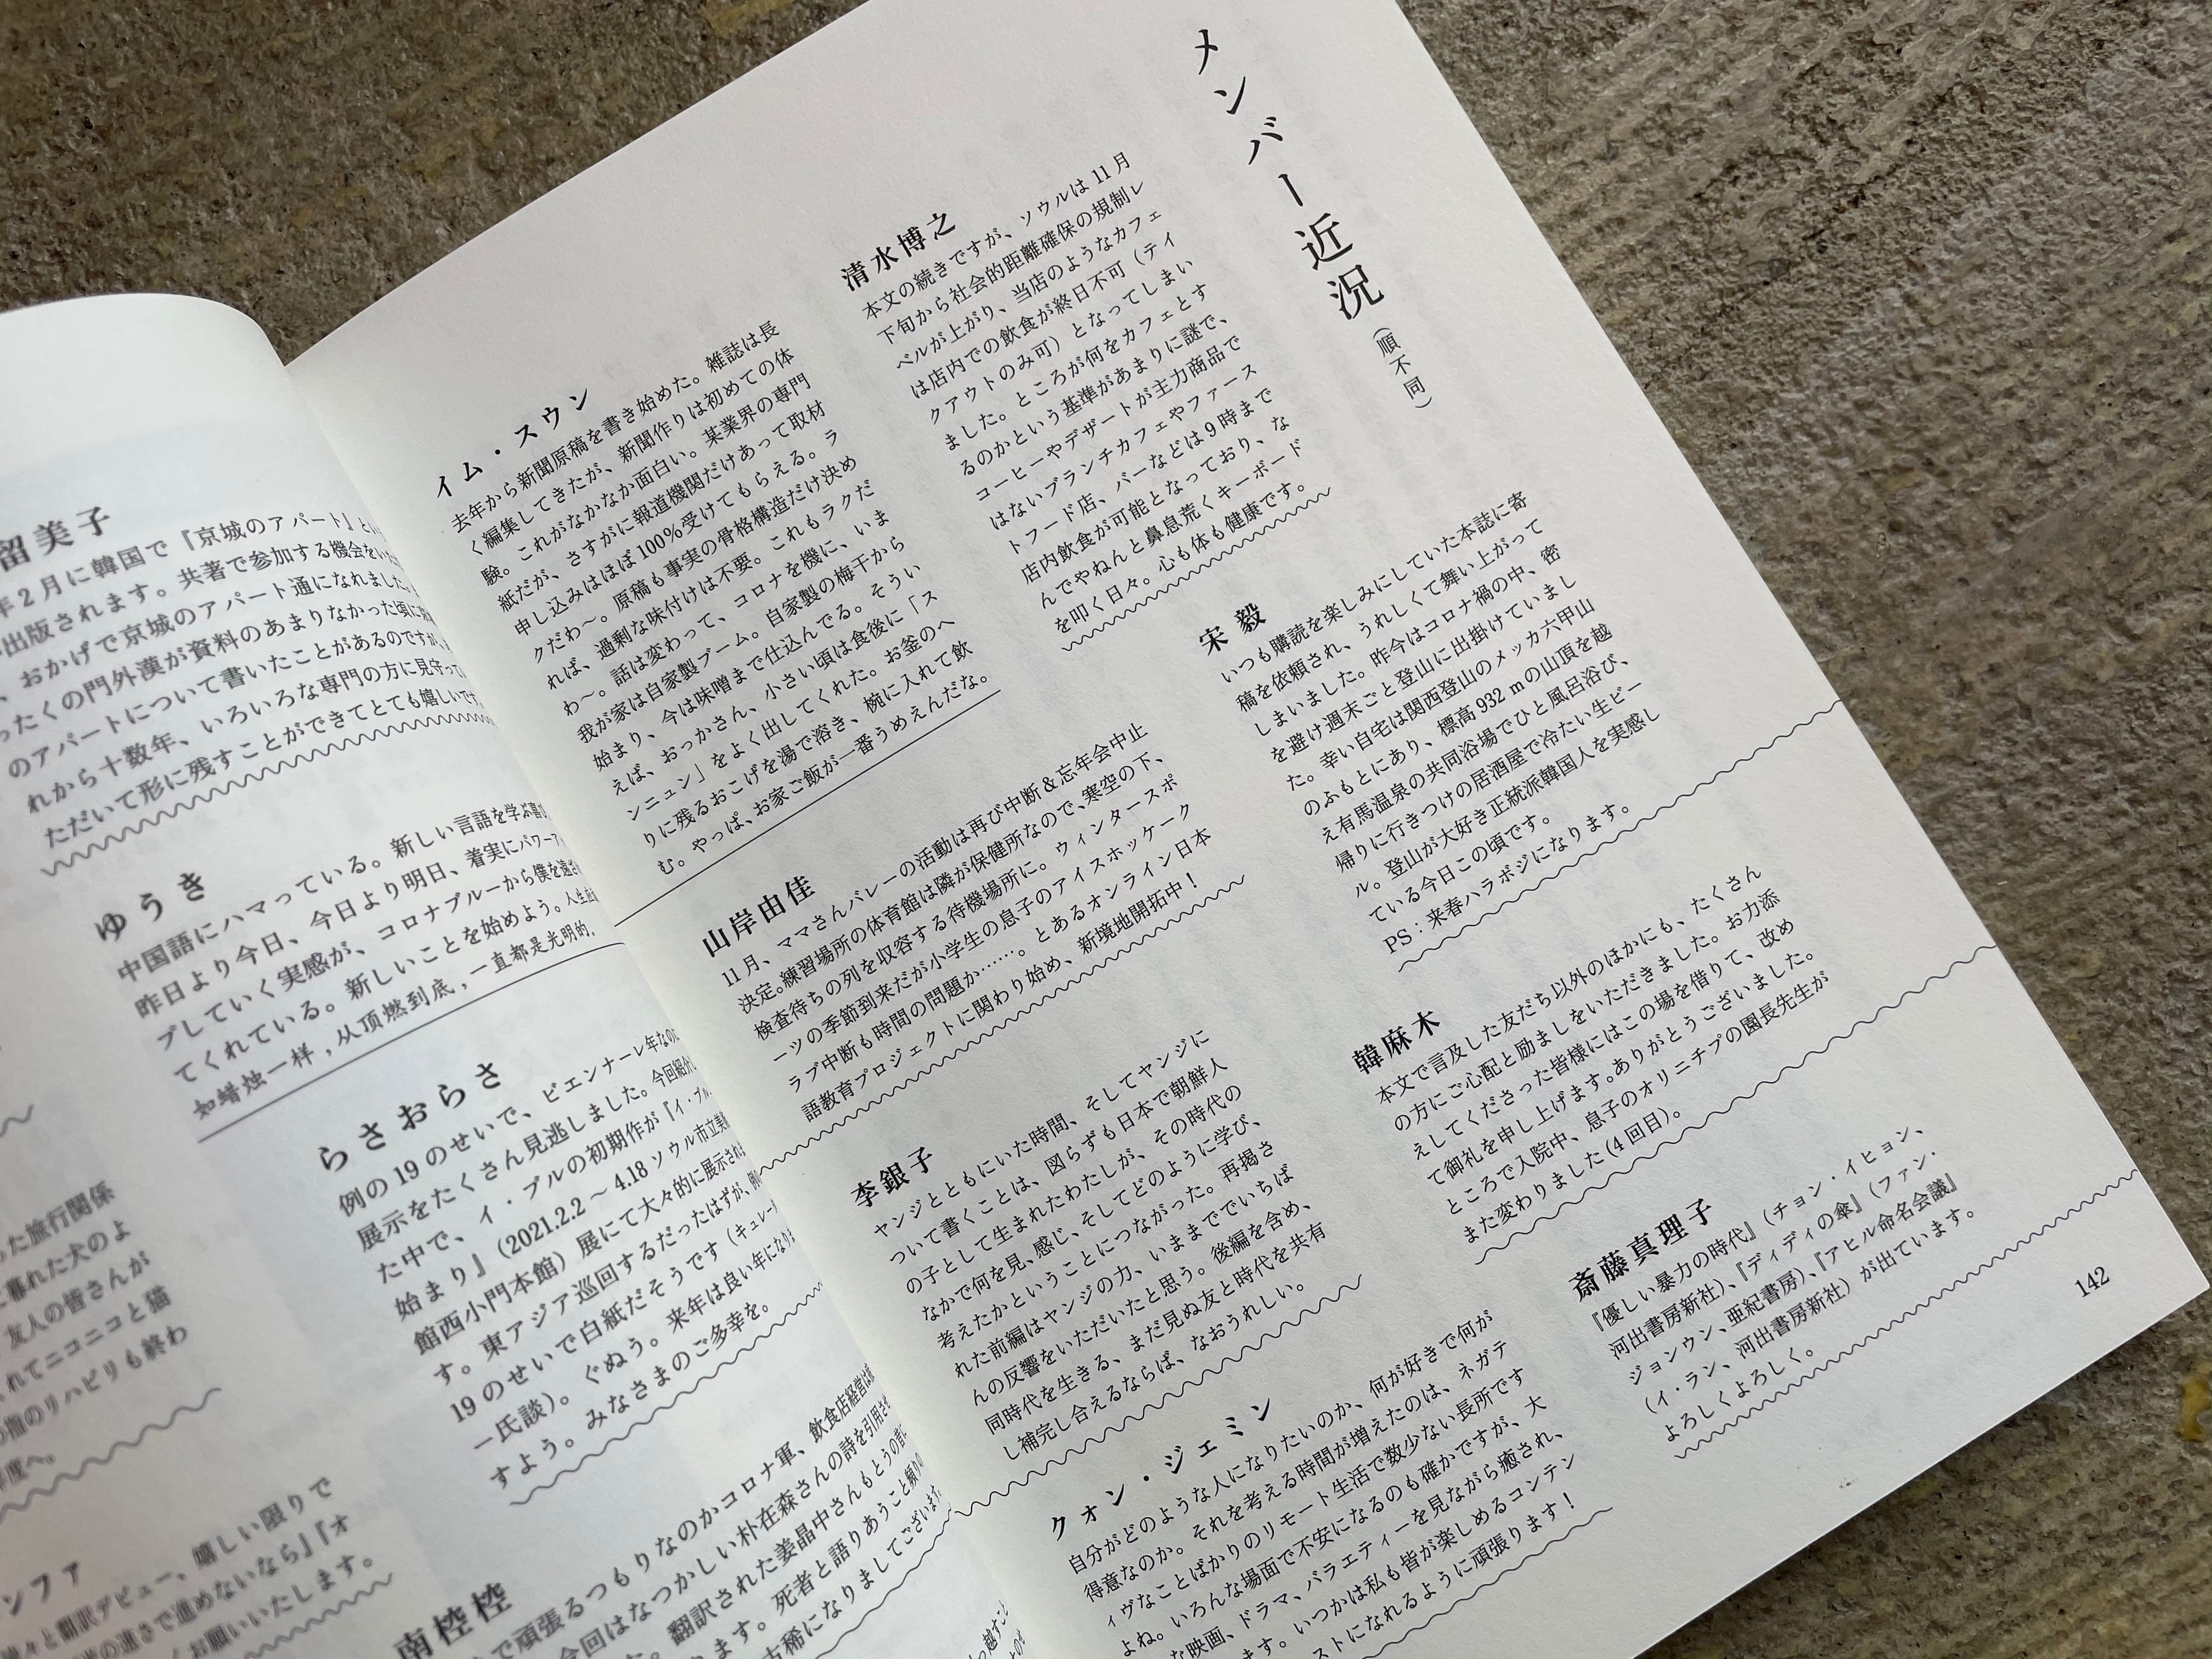 メンバー近況
（順不同）
清水博之
本文の続きですが、ソウルは11月
下旬から社会的距離確保の規制レ
ベルが上がり、当店のようなカフェ
は店内での飲食が終日不可（テイ
クアウトのみ可）となってしまい
ました。ところが何をカフェとす
るのかという基準があまりに謎で、
コーヒーやデザートが主力商品で
はないブランチカフェやファース
トフード店、バーなどは9時まで
店内飲食が可能となっており、な
んでやねんと鼻息荒くキーボード
を叩く日々。心も体も健康です。
宋毅
いつも購読を楽しみにしていた本誌に寄
稿を依頼され、うれしくて舞い上がって
しまいました。昨今はコロナ禍の中、密
を避け週末ごと登山に出掛けていまし
た。幸い自宅は関西登山のメッカ六甲山
のふもとにあり、標高932mの山頂を越
え有馬温泉の共同浴場でひと風呂浴び、
帰りに行きつけの居酒屋で冷たい生ビー
ル。登山が大好き正統派韓国人を実感し
ている今日この頃です。
PS：来春ハラボジになります。
韓麻木
本文で言及した友だち以外のほかにも、たくさん
の方にご心配と励ましをいただきました。お力添
えしてくださった皆様にはこの場を借りて、改め
て御礼を申し上げます。ありがとうございました。
ところで入院中、息子のオリニチプの園長先生が
また変わりました（4回目）。
斎藤真理子
『優しい暴力の時代』（チョン・イヒョン、
河出書房新社）、『ディディの傘』（ファン・
ジョンウン、亜紀書房）、『アヒル命名会議』
（イ・ラン、河出書房新社）が出ています。
よろしくよろしく。
イム・スウン
去年から新聞原稿を書き始めた。雑誌は長
く編集してきたが、新聞作りは初めての体
験。これがなかなか面白い。某業界の専門
紙だが、さすがに報道機関だけあって取材
申し込みはほぼ100％受けてもらえる。ラ
クだわ〜。原稿も事実の骨格構造だけ決め
れば、過剰な味付けは不要。これもラクだ
わ〜。話は変わって、コロナを機に、いま
我が家は自家製ブーム。自家製の梅干から
始まり、今は味噌まで仕込んでる。そうい
えば、おっかさん、小さい頃は食後に「ス
ンニュン」をよく出してくれた。お釜のへ
りに残るおこげを湯で溶き、椀に入れて飲
む。やっぱ、お家ご飯が一番うめえんだな。
山岸由佳
11月、ママさんバレーの活動は再び中断＆忘年会中止
決定。練習場所の体育館は隣が保健所なので、寒空の下、
検査待ちの列を収容する待機場所に。ウィンタースポ
ーツの季節到来だが小学生の息子のアイスホッケーク
ラブ中断も時間の問題か……。とあるオンライン日本
語教育プロジェクトに関わり始め、新境地開拓中！
李銀子
ヤンジとともにいた時間、そしてヤンジに
ついて書くことは、図らずも日本で朝鮮人
の子として生まれたわたしが、その時代の
なかで何を見、感じ、そしてどのように学び、
考えたかということにつながった。再掲さ
れた前編はヤンジの力、いままででいちば
んの反響をいただいたと思う。後編を含め、
同時代を生きる、まだ見ぬ友と時代を共有
し補完し合えるならば、なおうれしい。
クォン・ジェミン
自分がどのような人になりたいのか、何が好きで何が
得意なのか。それを考える時間が増えたのは、ネガテ
ィヴなことばかりのリモート生活で数少ない長所です
よね。いろんな場面で不安になるのも確かですが、大
な映画、ドラマ、バラエティーを見ながら癒され、
ます。いつかは私も皆が楽しめるコンテン
ストになれるように頑張ります！
142
留美子
年2月に韓国で『京城のアパート』
出版されます。共著で参加する機会を
、おかげで京城のアパート通になれました。
ったくの門外漢が資料のあまりなかった頃に
のアパートについて書いたことがあるのですが、
れから十数年、いろいろな専門の方に見守って
ただいて形に残すことができてとても嬉しいです
ゆうき
中国語にハマっている。新しい言語を学ぶ
昨日より今日、今日より明日、着実にパワーア
プしていく実感が、コロナブルーから僕を遠ざ
てくれている。新しいことを始めよう。人生
如蜡烛一样，从顶燃到底，一直都是光明的.
らさおらさ
例の19のせいで、ビエンナーレ年なのに
展示をたくさん見逃しました。今回紹介
た中で、イ・ブルの初期作が『イ・ブル
始まり』（2021.2.2〜4.18ソウル市立美術
館西小門本館）展にて大々的に展示され
す。東アジア巡回するだったはずが、例の
19のせいで白紙だそうです（キュレータ
ー氏談）。ぐぬう。来年は良い年になりま
すよう。みなさまのご多幸を。
南椌椌
で頑張るつもりなのかコロナ軍、飲食店経営は
今回はなつかしい朴在森さんの詩を引用させ
翻訳された姜晶中さんもとうの昔に
ます。死者と語りあうこと頻りの
古稀になりましてございます
った旅行関係
に暮れた犬のよ
友人の皆さんが
れてニコニコと猫
の指のリハビリも終わ
年度へ。
ンファ
々と翻訳デビュー、嬉しい限りで
の速さで進めないなら』『オ
お願いいたします。